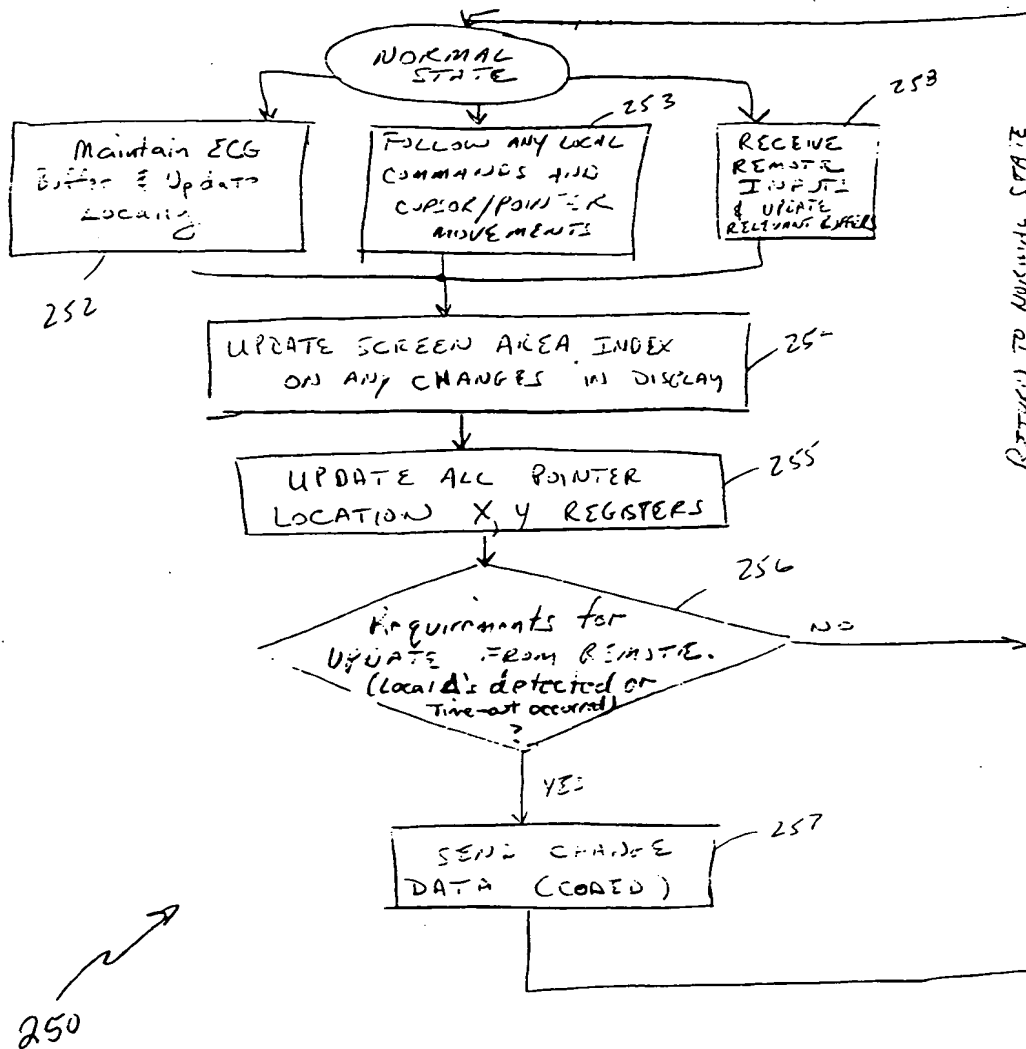 NORMAL
STATE
253
253
Maintain ECG
Buffer & Update
Locally
FOLLOW ANY LOCAL
COMMANDS AND
CURSOR/POINTER
MOVEMENTS
RECEIVE
REMOTE
INPUTS
& UPDATE
RELEVANT BUFFERS
252
UPDATE SCREEN AREA INDEX
ON ANY CHANGES IN DISPLAY
25
RETURN TO NORMAL STATE
UPDATE ALL POINTER
LOCATION X, Y REGISTERS
255
256
Requirements for
UPDATE FROM REMOTE.
(Local Δ's detected or
Time-out occurred)
?
NO
YES
SEND CHANGE
DATA (CODED)
257
250